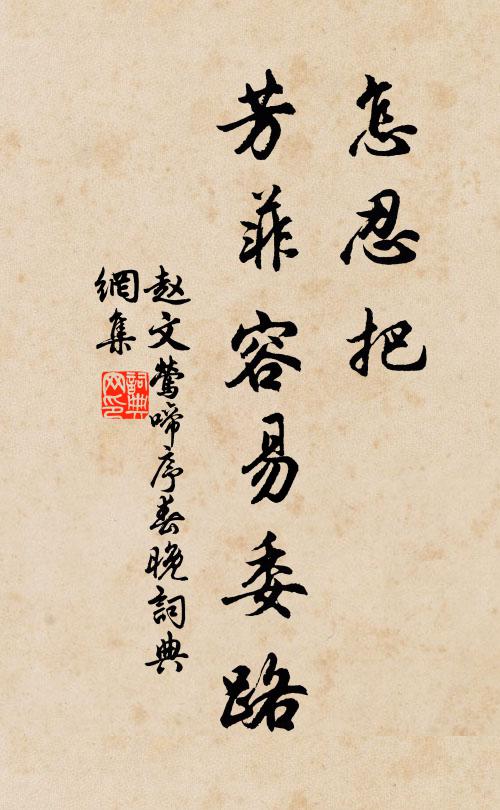 怎忍把
芳菲容易委路
赵文莺啼序春晚詞典
網集
詞典
网印